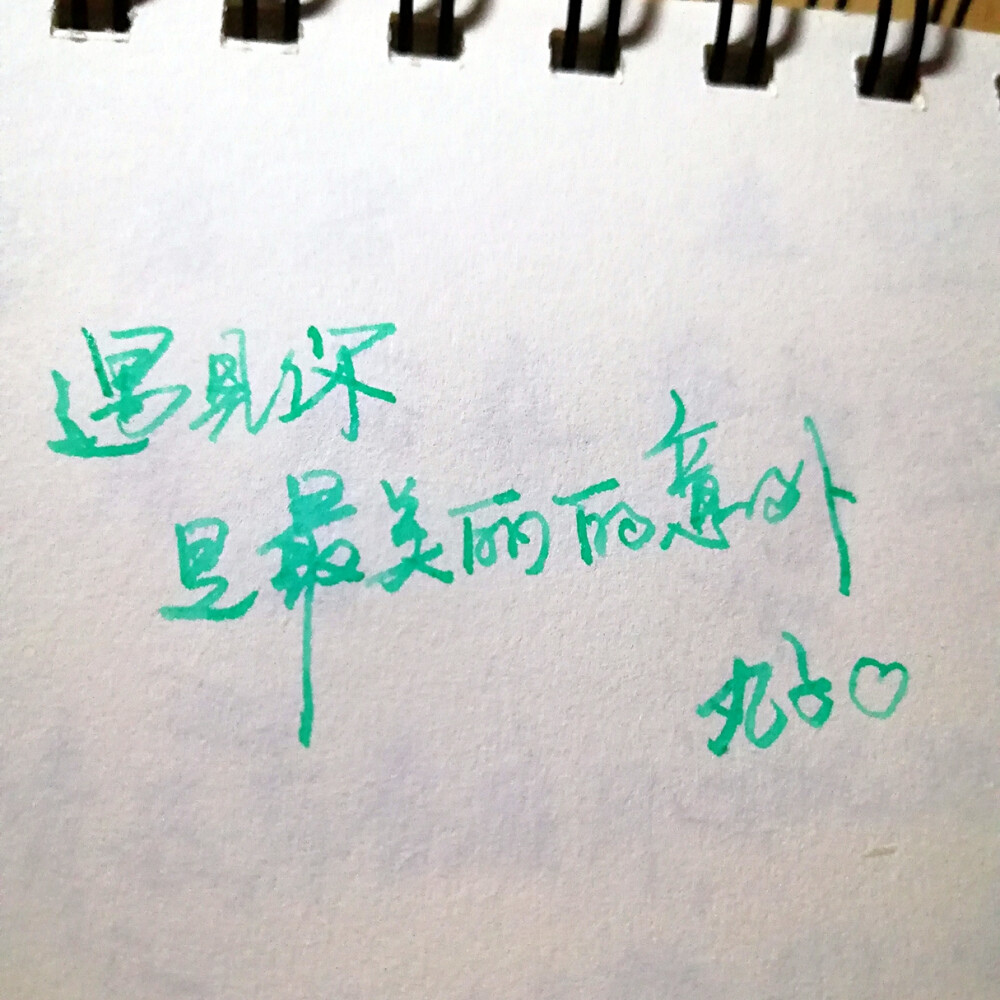 遇见你
是最美丽的意外
丸子♡